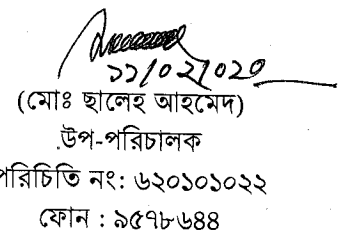 ১১/০২/০২০
(মোঃ ছালেহ আহমেদ)
উপ-পরিচালক
পরিচিতি নং: ৬২০১০১০২২
ফোন : ৯৫৭৮৬৪৪